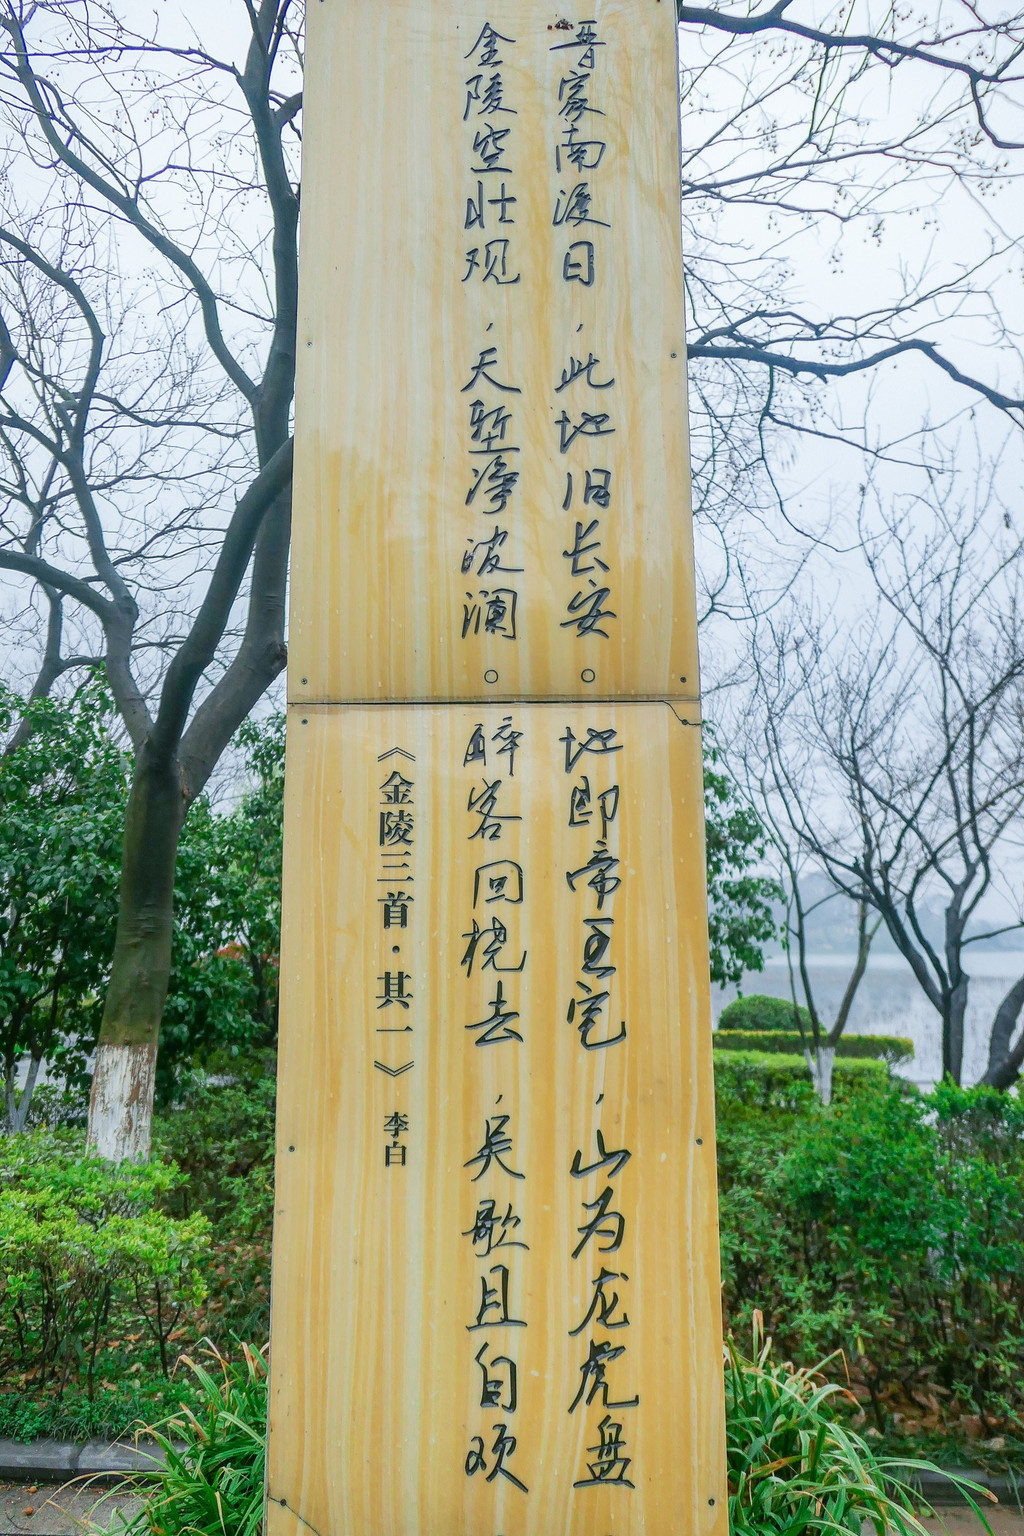 晋家南渡日，此地旧长安。地即帝王宅，山为龙虎盘
金陵空壮观，天堑净波澜。醉客回桡去，吴歌且自欢
《金陵三首·其一》 李白